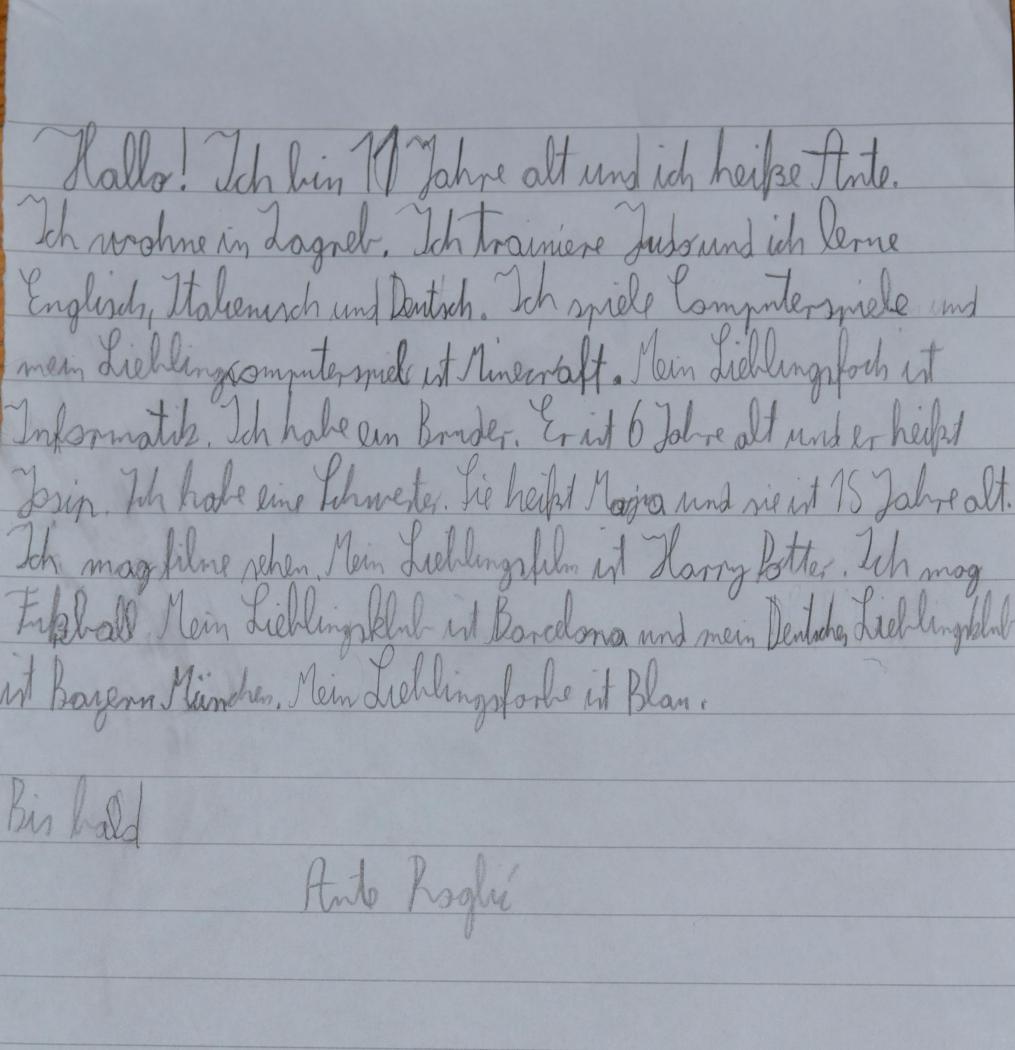 Hallo! Ich bin 11 Jahre alt und ich heiße Ante.
Ich wohne in Zagreb. Ich trainiere Judo und ich lerne
Englisch, Italienisch und Deutsch. Ich spiele Computerspiele und
mein Lieblingscomputerspiel ist Minecraft. Mein Lieblingsfach ist
Informatik. Ich habe ein Bruder. Er ist 6 Jahre alt und er heißt
Josip. Ich habe eine Schwester. Sie heißt und sie ist 15 Jahre alt.
Ich mag filme sehen. Mein Lieblingsfilm ist Harry Potter. Ich mag
Fußball. Mein Lieblingsklub ist Barcelona und mein Deutscher Lieblingsklub
ist Bayern München. Mein Lieblingsfarbe ist Blau.
Bis bald
Ante Roglić